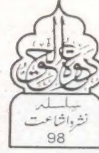 دعوة الحق
سلسلہ
نشر و اشاعت
98